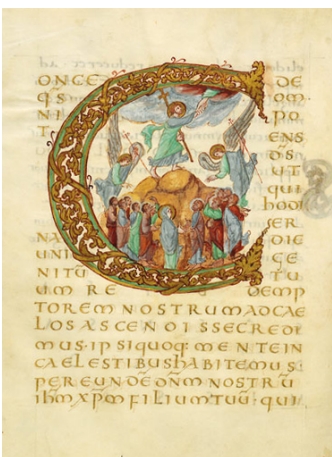 CONCEDE
q̄s OM
NIPO
TENS
d̄s
UT
qui
hodi
ER
NA DIE
UNIGE
NITŪ TU
UM REDEMP
TOREM NOSTRUM AD CAE
LOS ASCENDISSE CREDI
MUS· IPSI QUOQ: MENTE IN
CAELESTIBUS HABITEMUS·
PER EUNDĒ DN̄M NOSTRŪ
IHM̄ XPM̄ FILIUM TUŪ· QUI